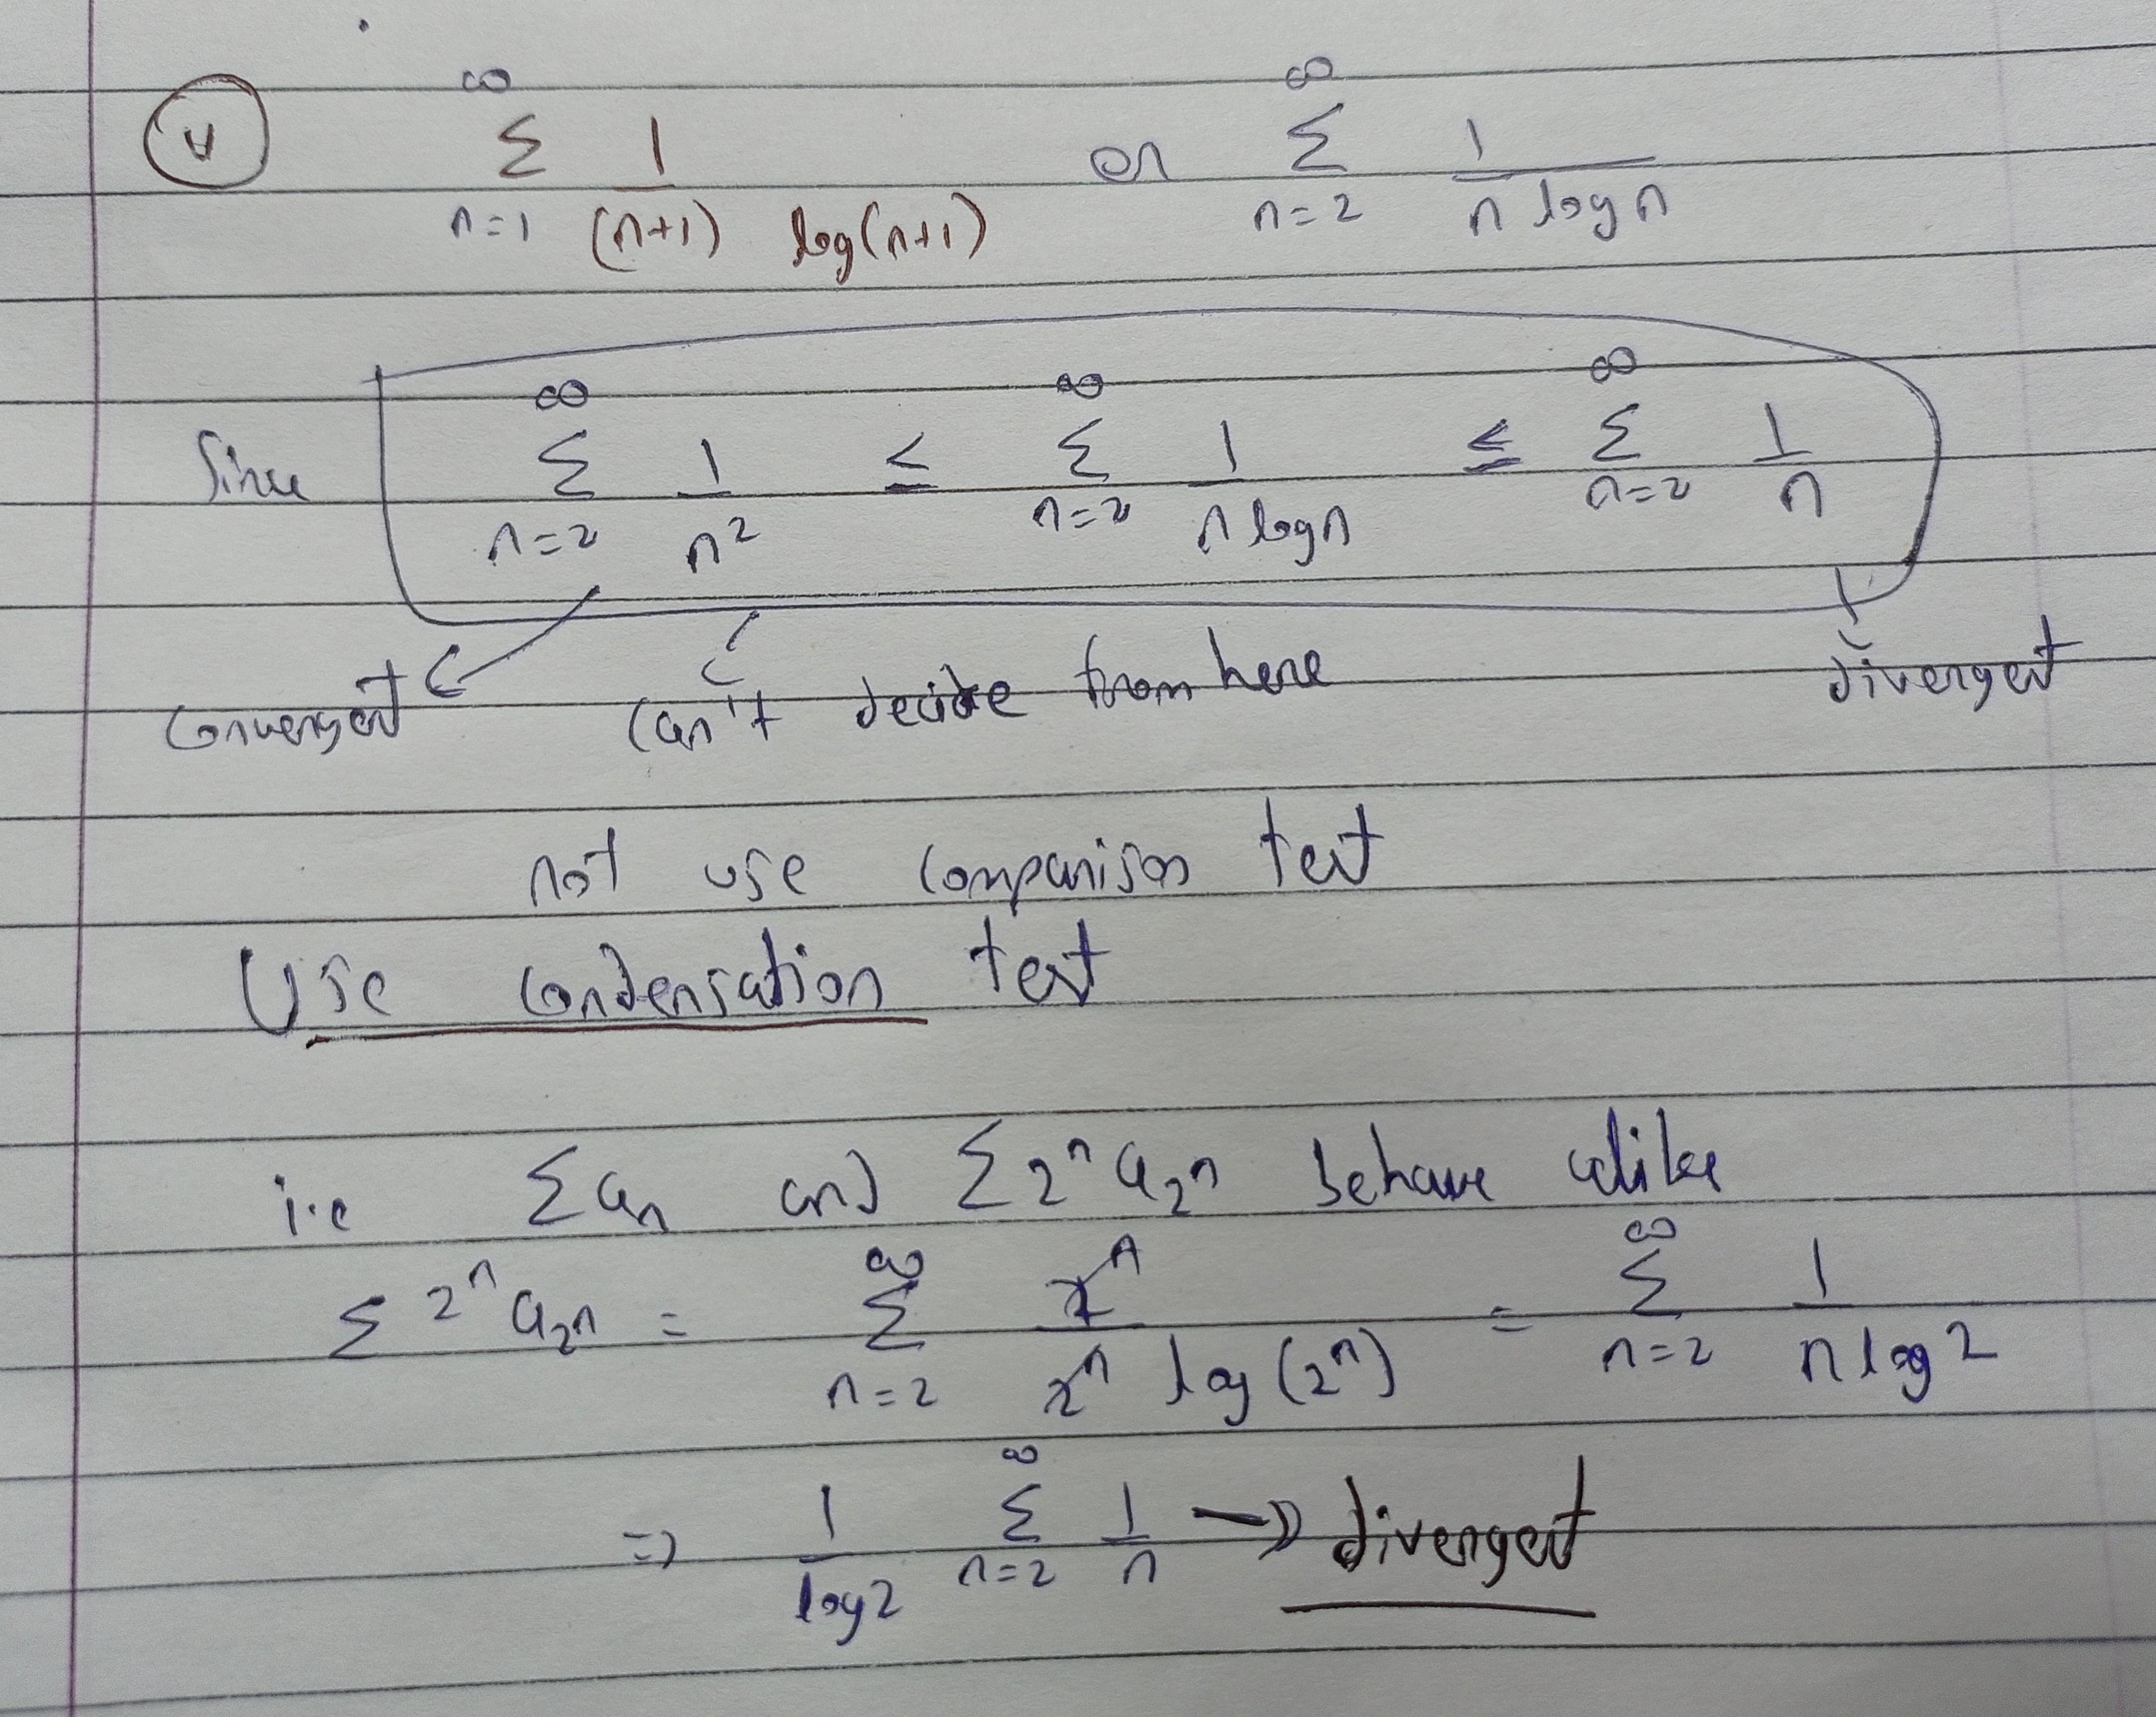 (v) ∞ Σ n=1 1/((n+1) log(n+1)) or ∞ Σ n=2 1/(n log n)
Since ∞ Σ n=2 1/n² ≤ ∞ Σ n=2 1/(n log n) ≤ ∞ Σ n=2 1/n
convergent can't decide from here divergent
not use comparison test
Use condensation test
i.e Σaₙ and Σ2ⁿ a_2ⁿ behave alike
Σ 2ⁿ a_2ⁿ = ∞ Σ n=2 2ⁿ/(2ⁿ log(2ⁿ)) = ∞ Σ n=2 1/(n log 2)
⇒ 1/log2 ∞ Σ n=2 1/n → divergent